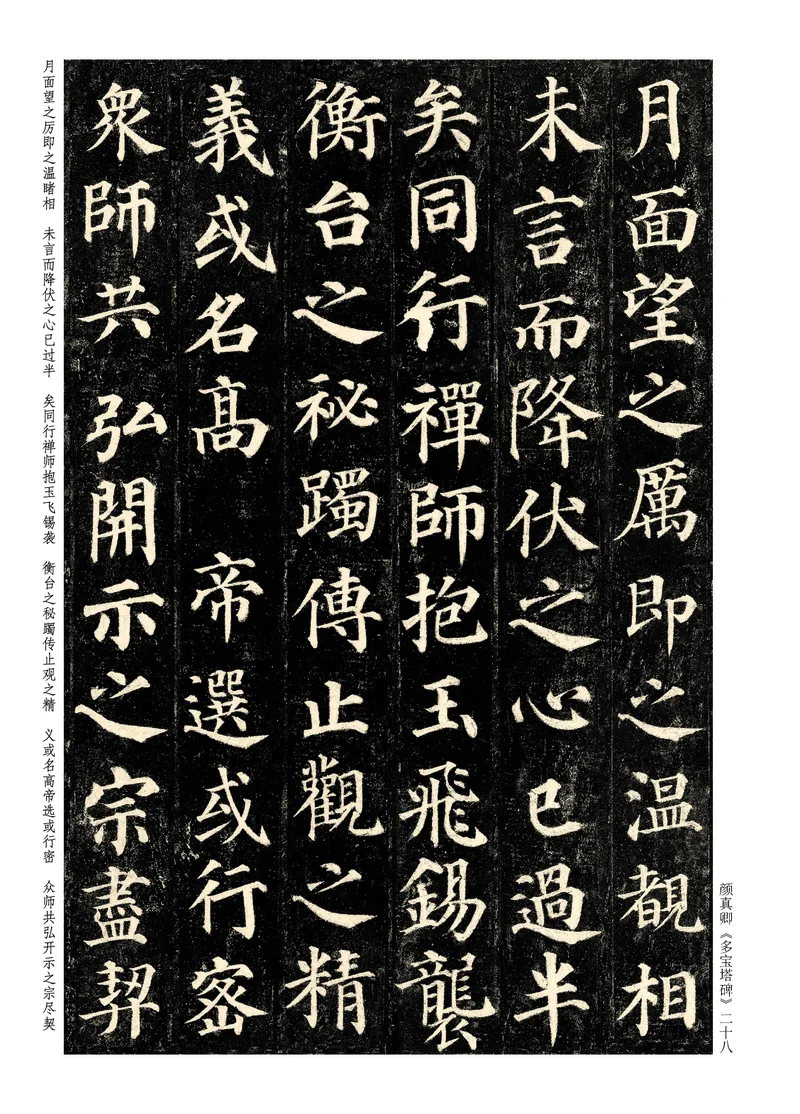 月面望之厲即之温覩相
未言而降伏之心已過半
矣同行禪師抱玉飛錫襲
衡台之秘躅傳止觀之精
義或名高 帝選或行密
衆師共弘開示之宗盡契
颜真卿《多宝塔碑》二十八
月面望之厉即之温睹相 未言而降伏之心已过半 矣同行禅师抱玉飞锡袭 衡台之秘躅传止观之精 义或名高帝选或行密 众师共弘开示之宗尽契